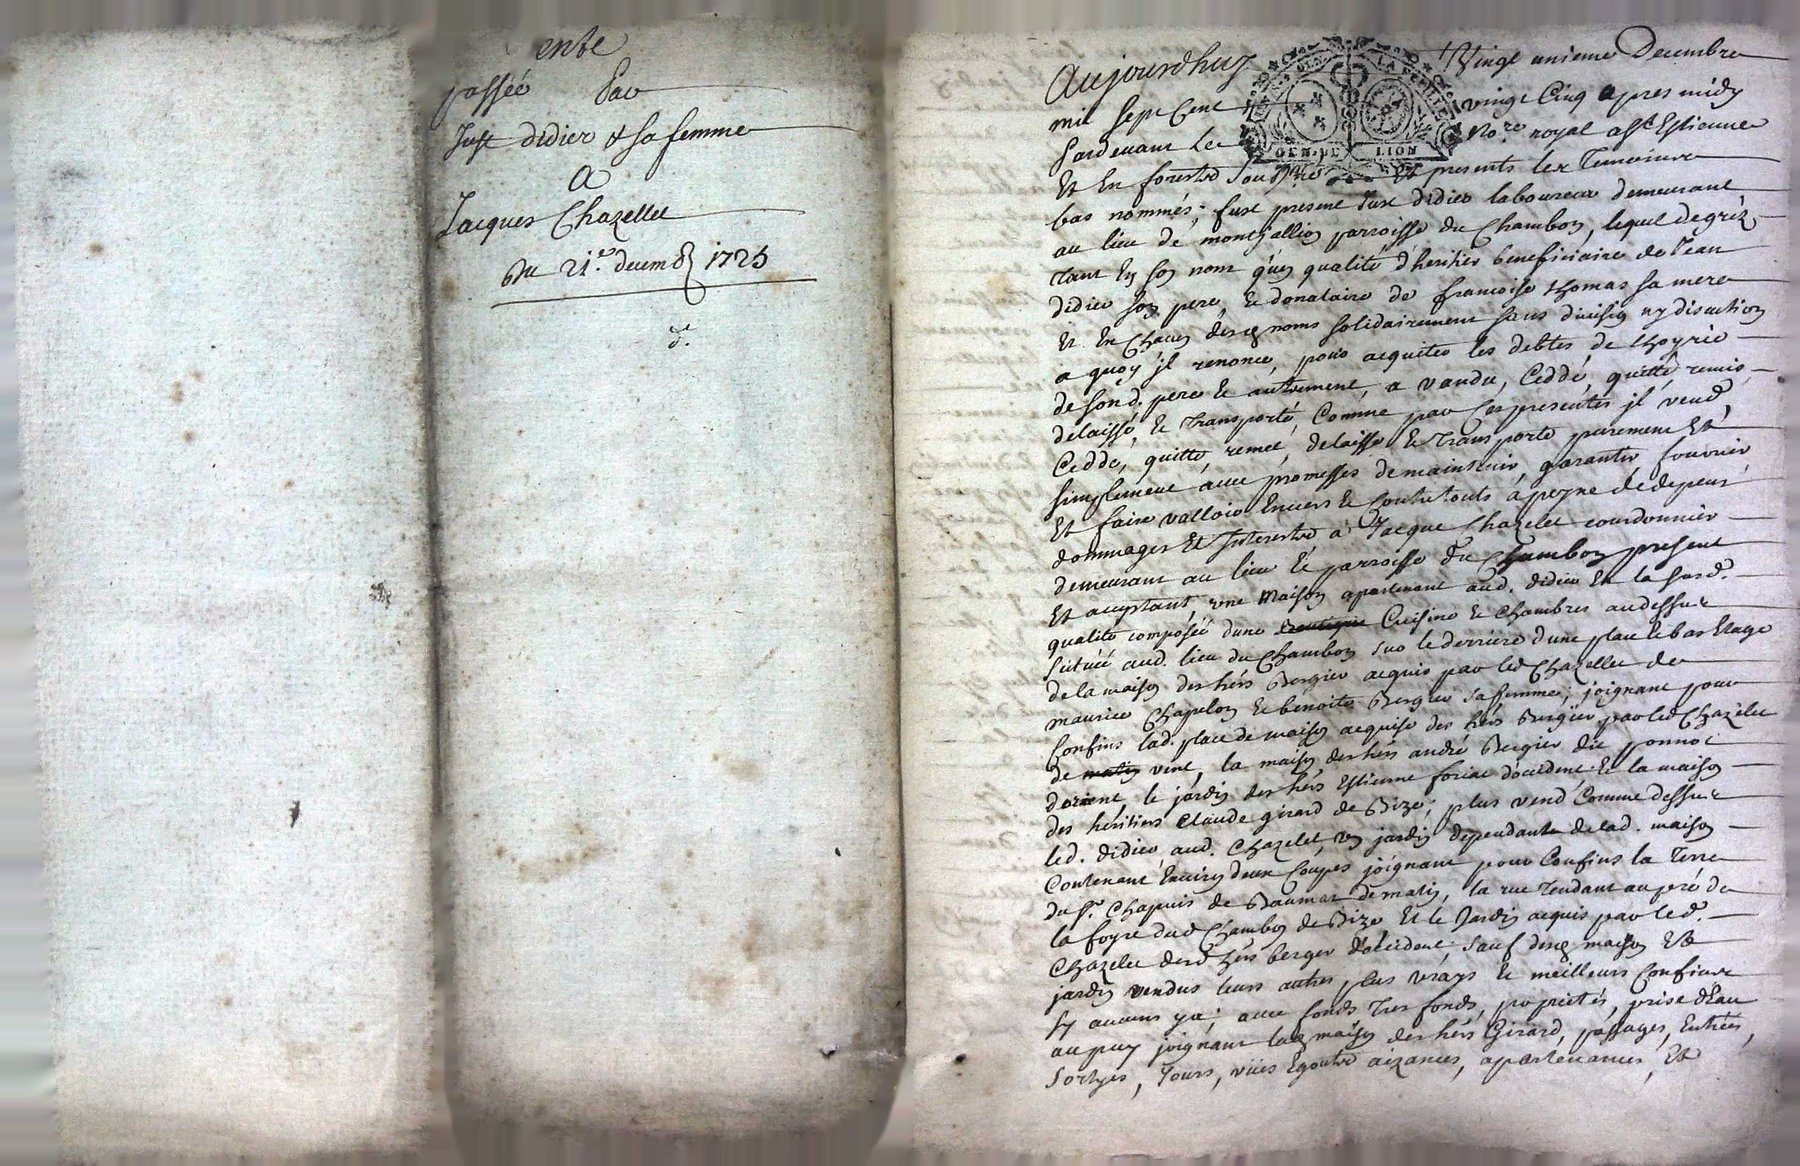 ente
passée Par
Just didier & sa femme
A
Jacques Chazelle
Du 21e. decemb 1725
Aujourdhuy Vingt unieme Decembre
mil sept Cent vingt Cinq apres midy
Pardevant Les No.re royal a St Estienne
Et En forest et presents les Temoins
bas nommés; fust present Just Didier laboureur demeurant
au lieu de montjallion parroisse du Chambon, lequel de gréz
tant En son nom qu'en qualité d'heritier beneficiaire de Jean
didier son pere, & donataire de francoise thomas sa mere
Et En Chacun desq noms solidairement sans division ny discution
a quoy jl renonce, pour acquiter les debtes de
de sond. pere & autrement, a vandu, Ceddé, quitté remis,
delaissé, & transporté, Comme par Ces presentes jl vend
Cedde, quitte, remet, delaisse & transporte purement Et
simplement avec promesses de maintenir, garantir fournir
Et faire valloir Envers & Contre touts à peyne de depens
dommages Et Interests à Jacque Chazelet courdonnier
demeurant au lieu & parroisse du Chambon present
Et acceptant, une Maison apartenant aud. didier En la susd.
qualité composéé dune boutique Cuisine & chambres au dessus
scituéé aud. lieu du Chambon sur le derriere d'une place & bas Etage
de la maison des hers Bergier acquis par led Chazelle de
maurice Chapelon & benoite Bergier sa femme; joignant pour
Confins lad. place de maison acquise des hers Bergier par led Chazelle
de matin vent, la maison des hers andré Bergier dit ponnot
dorient, le jardin des hers Estienne foriat d'occident & la maison
des heritiers Claude girard de Bize; plus vend Comme dessus
led. didier aud. Chazelet, un jardin dependant de lad. maison
Contenant Environ deux Coupes joignant pour Confins la Terre
du Sr. Chapuis de Daumar de matin, la rue tendant au pré de
la foyre dud Chambon de Bize Et le Jardin acquis par led.
Chazelet desd hers berger d'occident sauf desq maison Et
jardin vendus leurs autres plus vrays & meilleurs Confins
sy aucuns y a; avec fonds tres fonds, proprietés, prise d'Eau
au puy joignant la maison des hers Girard, passages, Entrées,
sortyes, Jours, vües Egouts aizances, apartenances, Et
GEN. DE LION